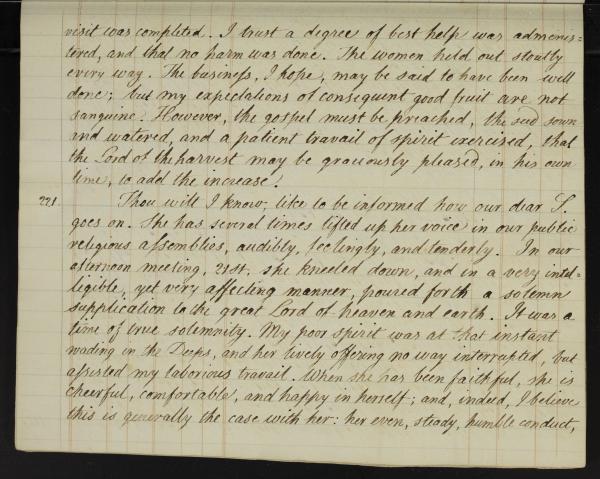 visit was completed. I trust a degree of best help was adminis=
tered, and that no harm was done. The women held out stoutly
every way. The business, I hope, may be said to have been well
done; but my expectations of consequent good fruit are not
sanguine. However, the gospel must be preached, the seed sown
and watered, and a patient travail of spirit exercised, that
the Lord of the harvest may be graciously pleased, in his own
time, to add the increase.
221. Thou will I know, like to be informed how our dear S.
goes on. She has several times lifted up her voice in our public
religious assemblies, audibly, feelingly, and tenderly. In our
afternoon meeting, 21st. she kneeled down, and in a very intel=
ligible, yet very affecting manner, poured forth a solemn
supplication to the great Lord of heaven and earth. It was a
time of true solemnity. My poor spirit was at that instant
wading in the Deeps, and her lively offering no way interrupted, but
assisted my laborious travail. When she has been faithful, she is
cheerful, comfortable, and happy in herself; and, indeed, I believe
this is generally the case with her: her even, steady, humble conduct,